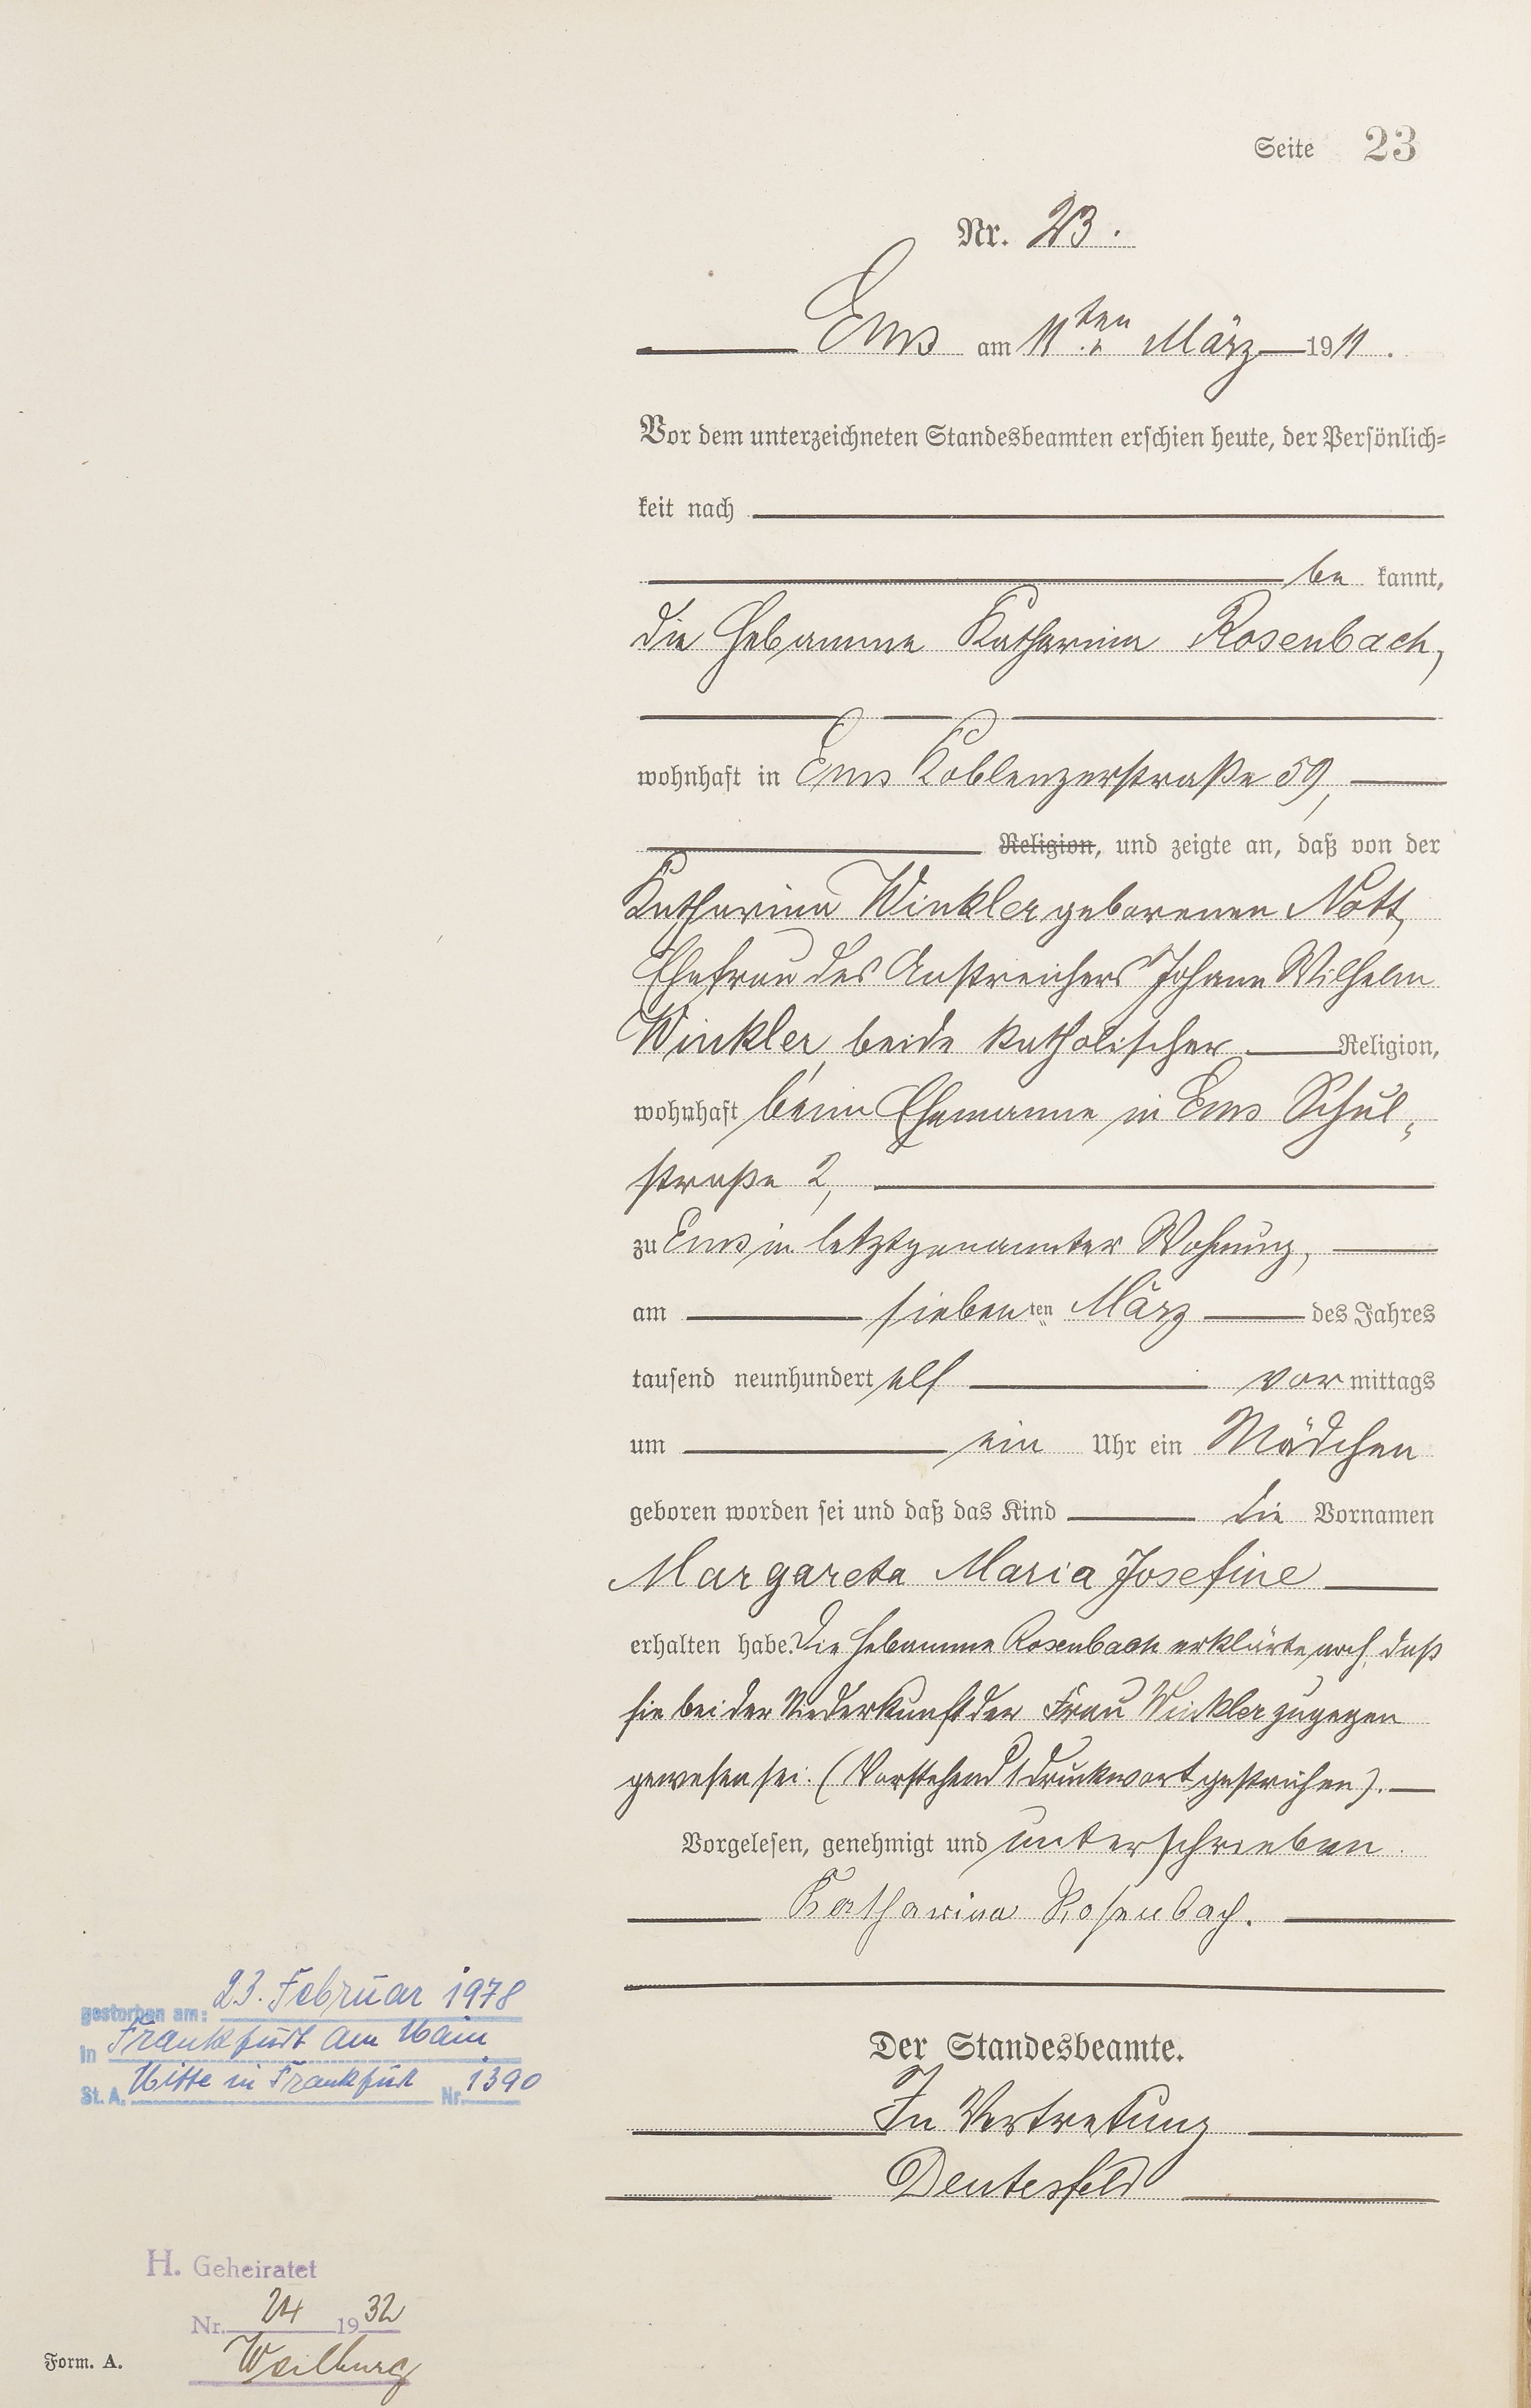 Seite 23
Nr. 23.
Ems am 11ten März 1911.
Vor dem unterzeichneten Standesbeamten erschien heute, der Persönlich-
keit nach
be kannt,
die Hebamme Katharina Rosenbach,
wohnhaft in Ems Koblenzerstraße 59,
Religion, und zeigte an, daß von der
Katharina Winkler geborenen Nott,
Ehefrau des Anstreichers Johann Wilhelm
Winkler, beide katholischer Religion,
wohnhaft beim Ehemanne in Ems Schul-
straße 2,
zu Ems in letztgenannter Wohnung,
am siebenten März des Jahres
tausend neunhundert elf vormittags
um ein Uhr ein Mädchen
geboren worden sei und daß das Kind die Vornamen
Margareta Maria Josefine
erhalten habe. Die Hebamme Rosenbach erklärte noch, daß
sie bei der Niederkunft der Frau Winkler zugegen
gewesen sei. (Vorstehend 1 Druckwort gestrichen).
Vorgelesen, genehmigt und unterschrieben
Katharina Rosenbach.
Der Standesbeamte.
In Vertretung
Deutesfeld
gestorben am: 23. Februar 1978
in Frankfurt am Main
St. A. Mitte in Frankfurt Nr. 1390
H. Geheiratet
Nr. 24 1932
Weilburg
Form. A.